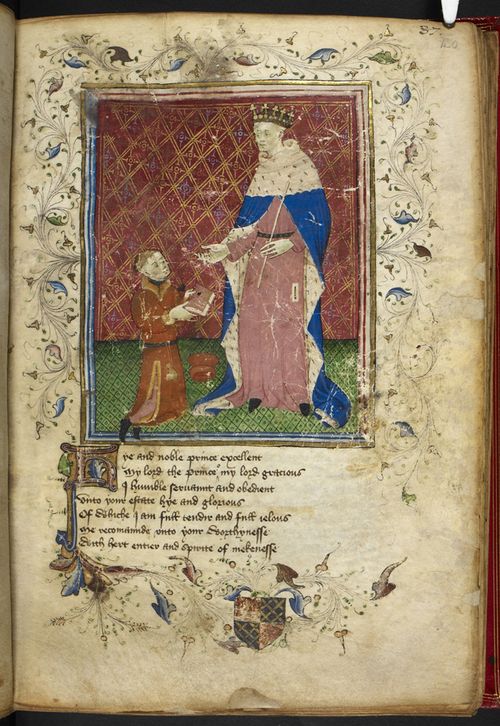 Hye and noble prince excellent
My lord the prince my lord gracious
I humble servaunt and obedient
Unto your estate hye and glorious
Of whiche I am full tendre and full ielous
Me recomaunde unto your worthynesse
With hert entier and spirite of mekenesse